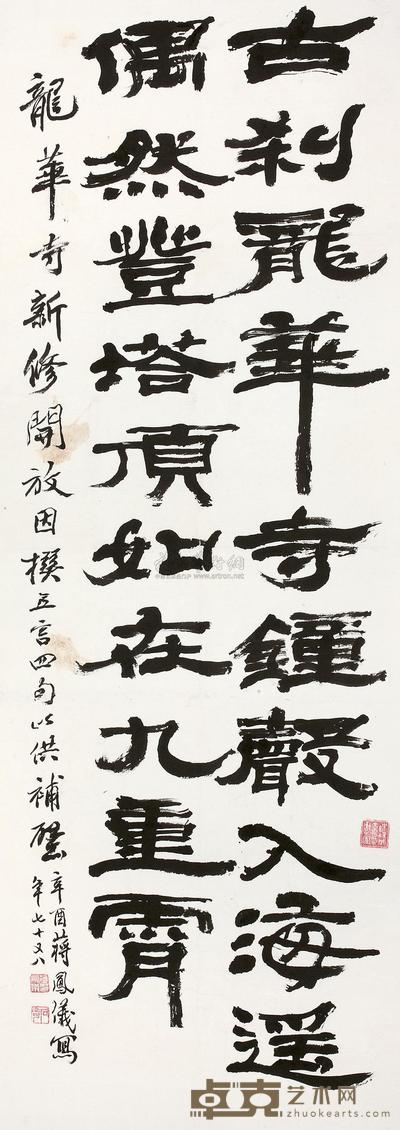 古刹龍華寺鐘聲入海遥
偶然登塔頂如在九重霄
龍華寺新修開放因撰五言四句以供補壁
辛酉蔣鳳儀寫
年七十又八
www.artron.net
卓克艺术网
zhuokearts.com